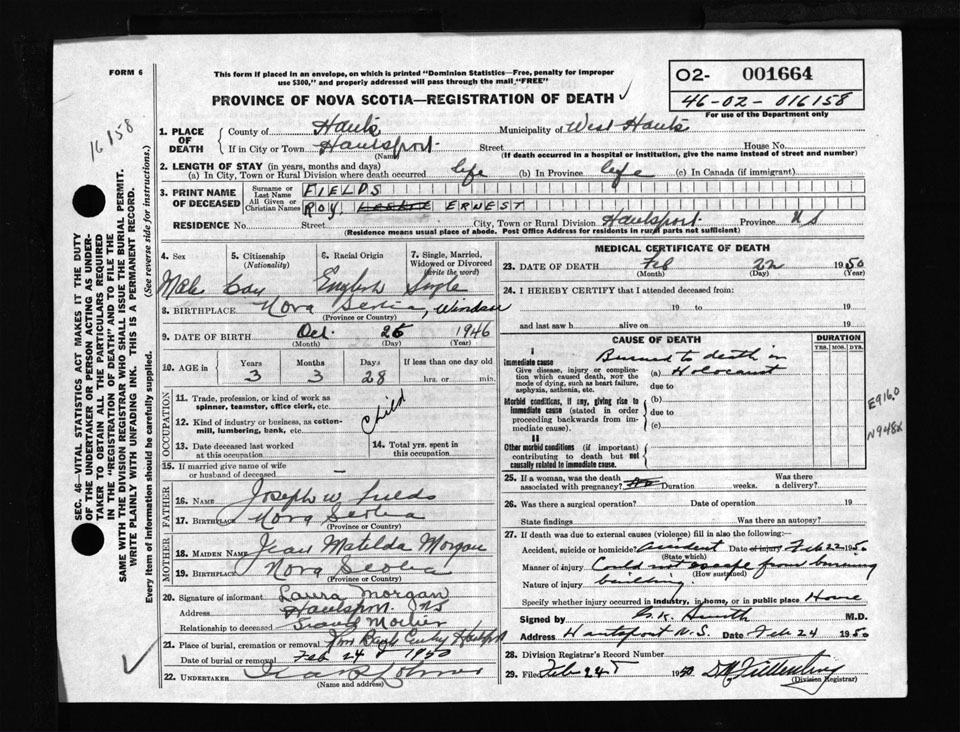 FORM 6
This form if placed in an envelope, on which is printed "Dominion Statistics—Free, penalty for improper
use $300," and properly addressed will pass through the mail "FREE"
PROVINCE OF NOVA SCOTIA—REGISTRATION OF DEATH
O2- 001664
46-02-016158
For use of the Department only
16158
SEC. 46—VITAL STATISTICS ACT MAKES IT THE DUTY
OF THE UNDERTAKER OR PERSON ACTING AS UNDER-
TAKER TO OBTAIN ALL THE PARTICULARS REQUIRED
IN THE "REGISTRATION OF DEATH" AND TO FILE THE
SAME WITH THE DIVISION REGISTRAR WHO SHALL ISSUE THE BURIAL PERMIT.
WRITE PLAINLY WITH UNFADING INK. THIS IS A PERMANENT RECORD.
Every item of information should be carefully supplied. (See reverse side for instructions.)
1. PLACE OF DEATH
County of Hants Municipality of West Hants
If in City or Town Hantsport Street House No.
(Name) (If death occurred in a hospital or institution, give the name instead of street and number)
2. LENGTH OF STAY (in years, months and days)
(a) In City, Town or Rural Division where death occurred life (b) In Province life (c) In Canada (if immigrant)
3. PRINT NAME OF DECEASED
Surname or Last Name FIELDS
All Given or Christian Names ROY, ERNEST
RESIDENCE No. Street City, Town or Rural Division Hantsport Province NS
(Residence means usual place of abode. Post Office Address for residents in rural parts not sufficient)
4. Sex 5. Citizenship (Nationality) 6. Racial Origin 7. Single, Married, Widowed or Divorced (write the word)
Male Can English Single
8. BIRTHPLACE Nova Scotia, Windsor
(Province or Country)
9. DATE OF BIRTH Oct. 25 1946
(Month) (Day) (Year)
10. AGE in Years Months Days If less than one day old
3 3 28 hrs. or min.
OCCUPATION
11. Trade, profession, or kind of work as
spinner, teamster, office clerk, etc.
12. Kind of industry or business, as cotton-
mill, lumbering, bank, etc. child
13. Date deceased last worked
at this occupation
14. Total yrs. spent in
this occupation
15. If married give name of wife
or husband of deceased
FATHER
16. NAME Joseph W Fields
17. BIRTHPLACE Nova Scotia
(Province or Country)
MOTHER
18. MAIDEN NAME Jean Matilda Morgan
19. BIRTHPLACE Nova Scotia
(Province or Country)
20. Signature of informant Laura Morgan
Address Hantsport NS
Relationship to deceased Grand Mother
21. Place of burial, cremation or removal
Date of burial or removal Feb 24 1950
22. UNDERTAKER
(Name and address)
MEDICAL CERTIFICATE OF DEATH
23. DATE OF DEATH Feb 22 1950
(Month) (Day) (Year)
24. I HEREBY CERTIFY that I attended deceased from:
19 to 19
and last saw h alive on 19
CAUSE OF DEATH DURATION
YRS. MOS. DYS.
I
Immediate cause
Give disease, injury or complica-
tion which caused death, NOT the
mode of dying, such as heart failure,
asphyxia, asthenia, etc.
Burned to death in
(a) Holocaust
due to
Morbid conditions, if any, giving rise to
immediate cause (stated in order
proceeding backwards from im-
mediate cause).
(b)
due to
(c)
II
Other morbid conditions (if important)
contributing to death but not
causally related to immediate cause.
E916.0
N948X
25. If a woman, was the death
associated with pregnancy? No Duration weeks. Was there
a delivery?
26. Was there a surgical operation? Date of operation 19
State findings Was there an autopsy?
27. If death was due to external causes (violence) fill in also the following:
Accident, suicide or homicide? accident Date of injury Feb 22 1950
(State which)
Manner of injury Could not escape from burning
(How sustained)
Nature of injury building
Specify whether injury occurred in industry, in home, or in public place. Home
Signed by G. K. Smith M.D.
Address Hantsport N.S. Date Feb 24 1950
28. Division Registrar's Record Number
29. Filed Feb 24 1950
(Division Registrar)